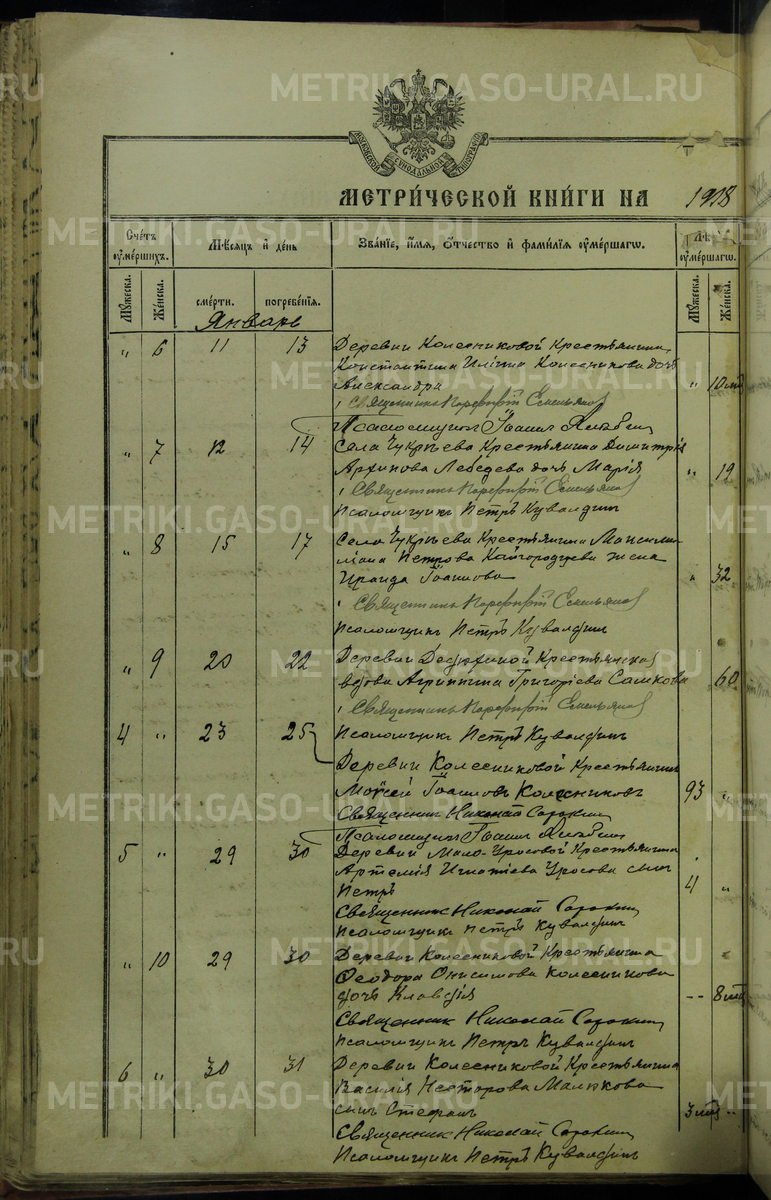 METRIKI.GASO-URAL.RU
МЕТРИ́ЧЕСКОЙ КНИ́ГИ НА 1918
Сче́тъ оуме́ршихъ.
Мѣ́сяцъ и день
Зва́нїе, и́мя, о́тчество и фами́лїя оуме́ршагѡ.
Лѣ́
оуме́ршагѡ.
Мꙋжеска.
Же́нска.
сме́рти.
погребе́нїя.
Мꙋжеска.
Же́нска.
Январь
" 6 11 13 Деревни Колесниковой Крестьянина
Константина Илiина Колесникова дочь
Александра " 10
Священникъ Порфирiй Емельянов
Псаломщикъ Iоаннъ
" 7 12 14 Села Чукрѣева Крестьянина Димитрiя
Архипова Лебедева дочь Марiя " 19
Священникъ Порфирiй Емельянов
Псаломщикъ Петръ Кувалдинъ
" 8 15 17 Села Чукрѣева Крестьянина Максими
лiана Петрова Кайгородцева жена
Ираида Iоаннова " 32
Священникъ Порфирiй Емельянов
Псаломщикъ Петръ Кувалдинъ
" 9 20 22 Деревни Дедюхиной Крестьянская
вдова Агриппина Григорiева Сашкова 60
Священникъ Порфирiй Емельянов
4 " 23 25 Псаломщикъ Петръ Кувалдинъ
Деревни Колесниковой Крестьянинъ
Моѵсей Iоанновъ Колесниковъ 93 "
Священник Николай Сорокин
Псаломщикъ Iоаннъ
5 " 29 30 Деревни Мало-Уросовой Крестьянина
Артемiя Игнатiева Уросова сынъ
Петръ 4 "
Священник Николай Сорокин
Псаломщикъ Петръ Кувалдинъ
" 10 29 30 Деревни Колесниковой Крестьянина
Ѳеодора Онисимова Колесникова
дочь Клавдiя -- 8
Священник Николай Сорокин
Псаломщикъ Петръ Кувалдинъ
6 " 30 31 Деревни Колесниковой Крестьянина
Василiя Несторова Малюкова
сынъ Стефанъ 3 "
Священник Николай Сорокин
Псаломщикъ Петръ Кувалдинъ